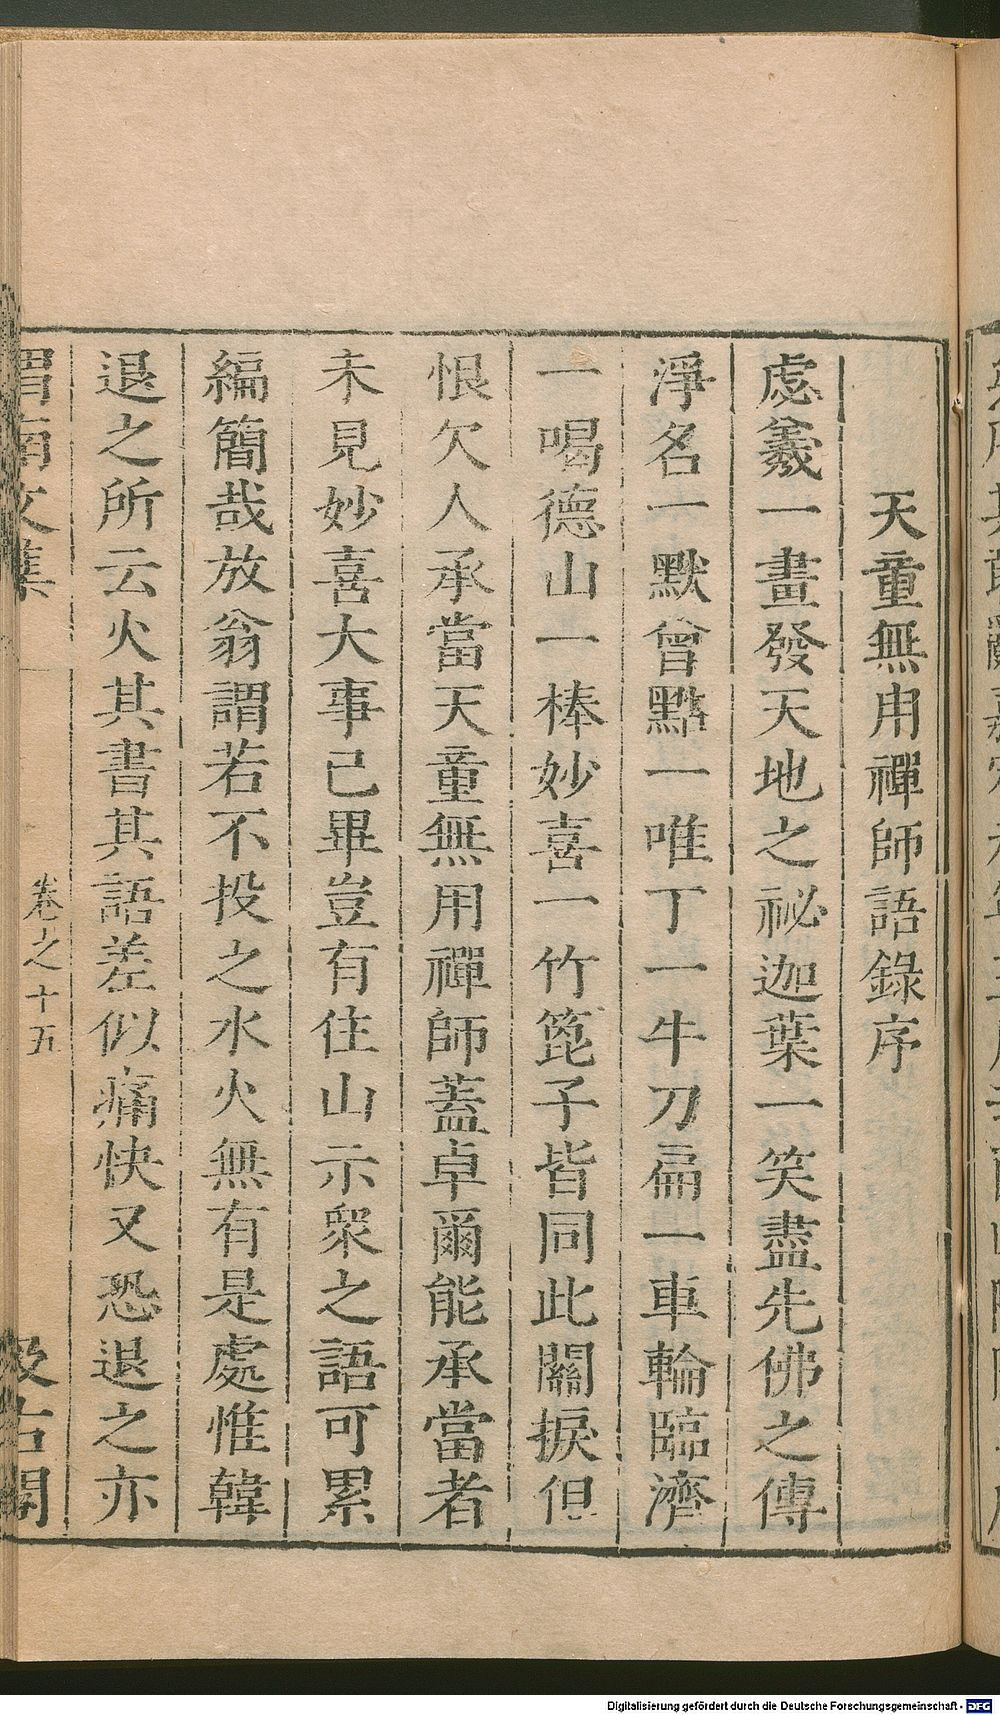 天童無用禪師語錄序
虙羲一畫發天地之祕迦葉一笑盡先佛之傳
淨名一默曾點一唯丁一牛刀扁一車輪臨濟
一喝德山一棒妙喜一竹篦子皆同此關捩但
恨欠人承當天童無用禪師蓋卓爾能承當者
未見妙喜大事已畢豈有住山示衆之語可累
編簡哉放翁謂若不投之水火無有是處惟韓
退之所云火其書其語差似痛快又恐退之亦
渭南文集 卷之十五 汲古閣
Digitalisierung gefördert durch die Deutsche Forschungsgemeinschaft - DFG